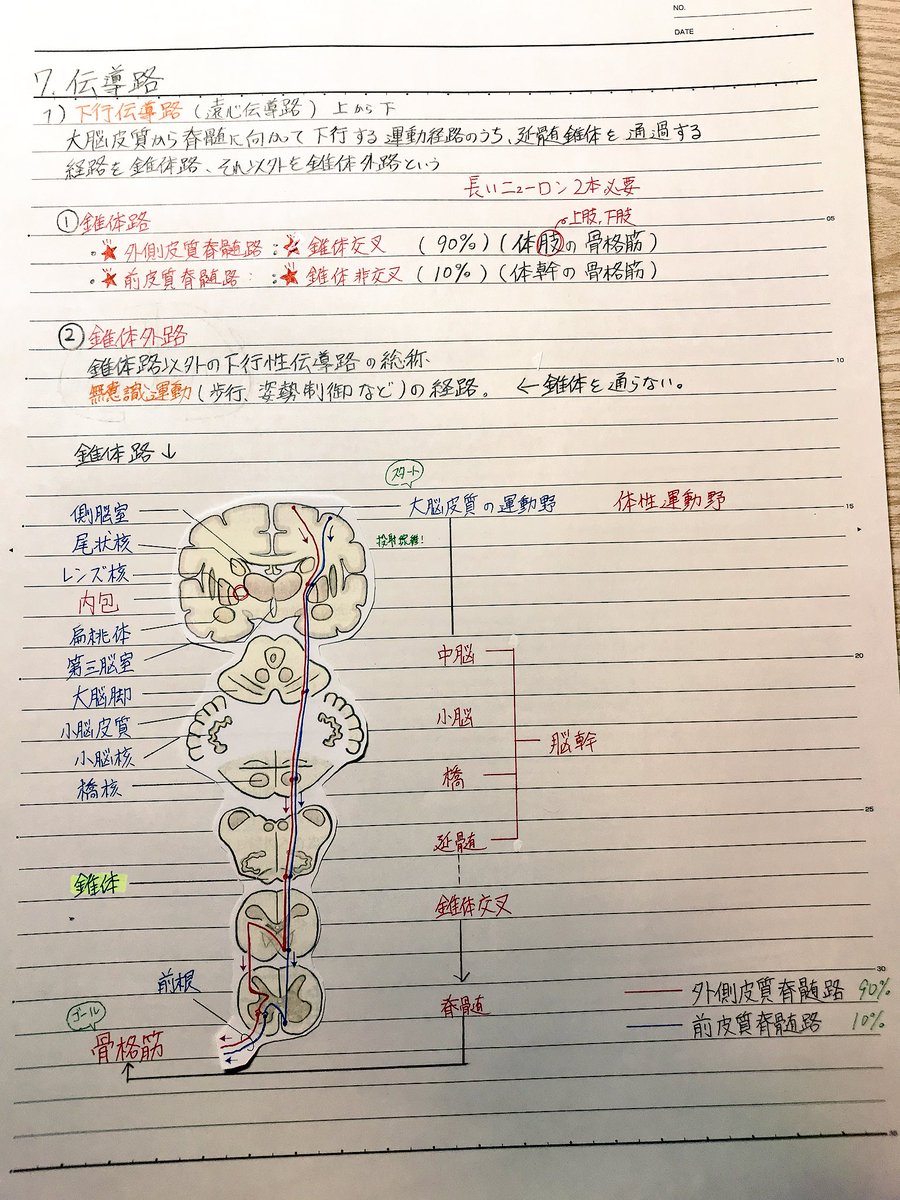 NO.
DATE
7. 伝導路
1) 下行伝導路 (遠心伝導路) 上から下
大脳皮質から脊髄に向かって下行する運動経路のうち、延髄錐体を通過する
経路を錐体路、それ以外を錐体外路という
長いニューロン2本必要
①錐体路
上肢、下肢
・★外側皮質脊髄路:★錐体交叉 (90%) (体肢の骨格筋)
・★前皮質脊髄路::★錐体非交叉 (10%) (体幹の骨格筋)
②錐体外路
錐体路以外の下行性伝導路の総称
無意識運動(歩行、姿勢制御など)の経路。 ←錐体を通らない。
錐体路↓
スタート
側脳室
大脳皮質の運動野 体性運動野
尾状核
投射線維!
レンズ核
内包
扁桃体
中脳
第三脳室
大脳脚
小脳皮質
小脳
脳幹
小脳核
橋核
橋
延髄
錐体
錐体交叉
前根
脊髄
外側皮質脊髄路 90%
ゴール
前皮質脊髄路 10%
骨格筋
05
10
15
20
25
30
35